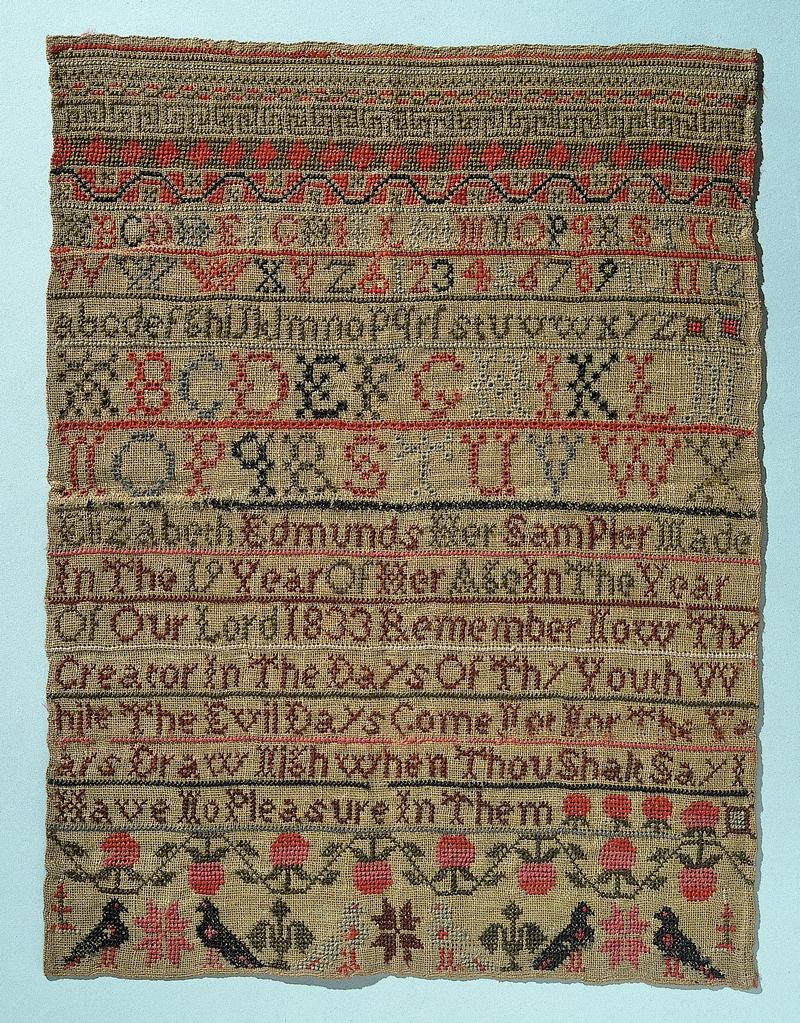 A B C D D E F G H I L M N O P q R S T U
W W W X Y Z 6 1 2 3 4 5 6 7 8 9 10 11 12
abcdefghiJklmnopqrſstuvwxyz
A B C D E F G H I K L M
N O P q R S T U V W X
Elizabeth Edmunds Her Sampler Made
In The 19 Year Of Her Age In The Year
Of Our Lord 1833 Remember Now Thy
Creator In The Days Of Thy Youth W
hile The Evil Days Come Nor Nor The Ye
ars Draw Nigh when Thou Shalt Say I
Have No Pleasure In Them